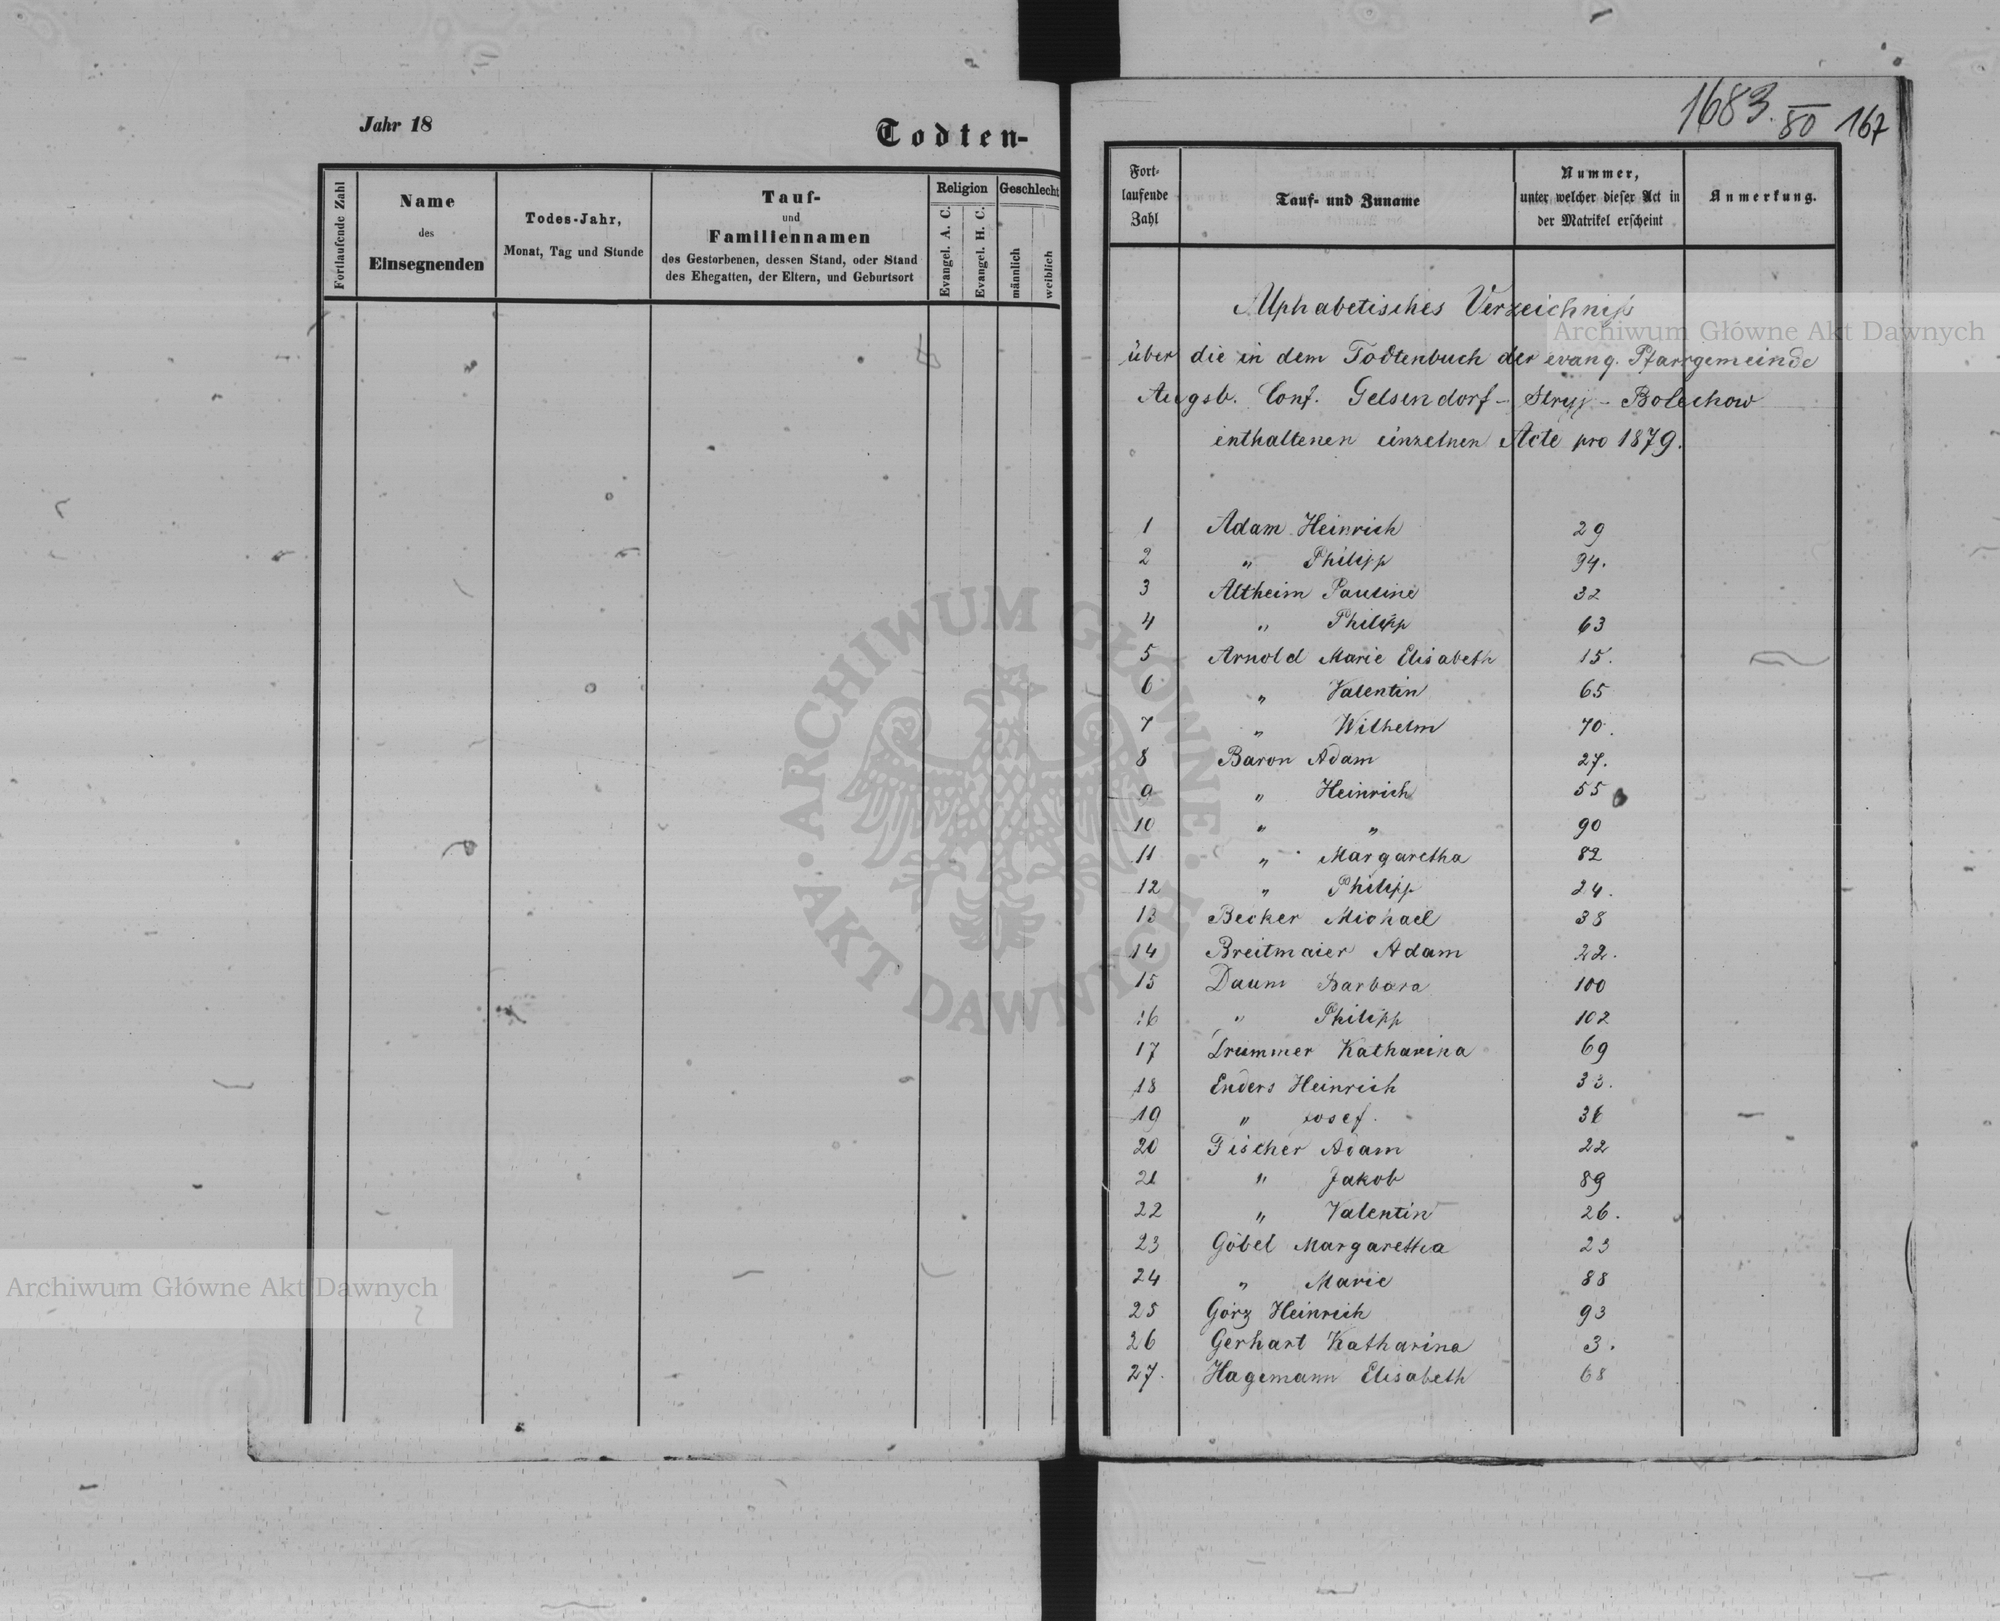 Jahr 18
Todten-
Fortlaufende Zahl
Name
des
Einsegnenden
Todes-Jahr,
Monat, Tag und Stunde
Tauf-
und
Familiennamen
des Gestorbenen, dessen Stand, oder Stand
des Ehegatten, der Eltern, und Geburtsort
Religion
Evangel. A. C.
Evangel. H. C.
Geschlecht
männlich
weiblich
1683. 80 167
Fort-
laufende
Zahl
Tauf- und Zuname
Nummer,
unter welcher dieser Act in
der Matrikel erscheint
Anmerkung.
Alphabetisches Verzeichniss
über die in dem Todtenbuch der evang. Pfarrgemeinde
Augsb. Conf. Gelsendorf - Stryj - Bolechow
enthaltenen einzelnen Acte pro 1879.
1 Adam Heinrich 29
2 " Philipp 94.
3 Altheim Pauline 32
4 " Philipp 63
5 Arnold Marie Elisabeth 15.
6 " Valentin 65
7 " Wilhelm 70.
8 Baron Adam 27.
9 " Heinrich 55
10 " " 90
11 " Margaretha 82
12 " Philipp 24.
13 Becker Michael 38
14 Breitmaier Adam 22.
15 Daum Barbara 100
16 " Philipp 102
17 Drummer Katharina 69
18 Enders Heinrich 33.
19 " Josef. 36
20 Fischer Adam 22
21 " Jakob 89
22 " Valentin 26.
23 Göbel Margaretha 23
24 " Marie 88
25 Görz Heinrich 93
26 Gerhart Katharina 3.
27. Hagemann Elisabeth 68
Archiwum Główne Akt Dawnych
Archiwum Główne Akt Dawnych
ARCHIWUM GŁÓWNE · AKT DAWNYCH ·